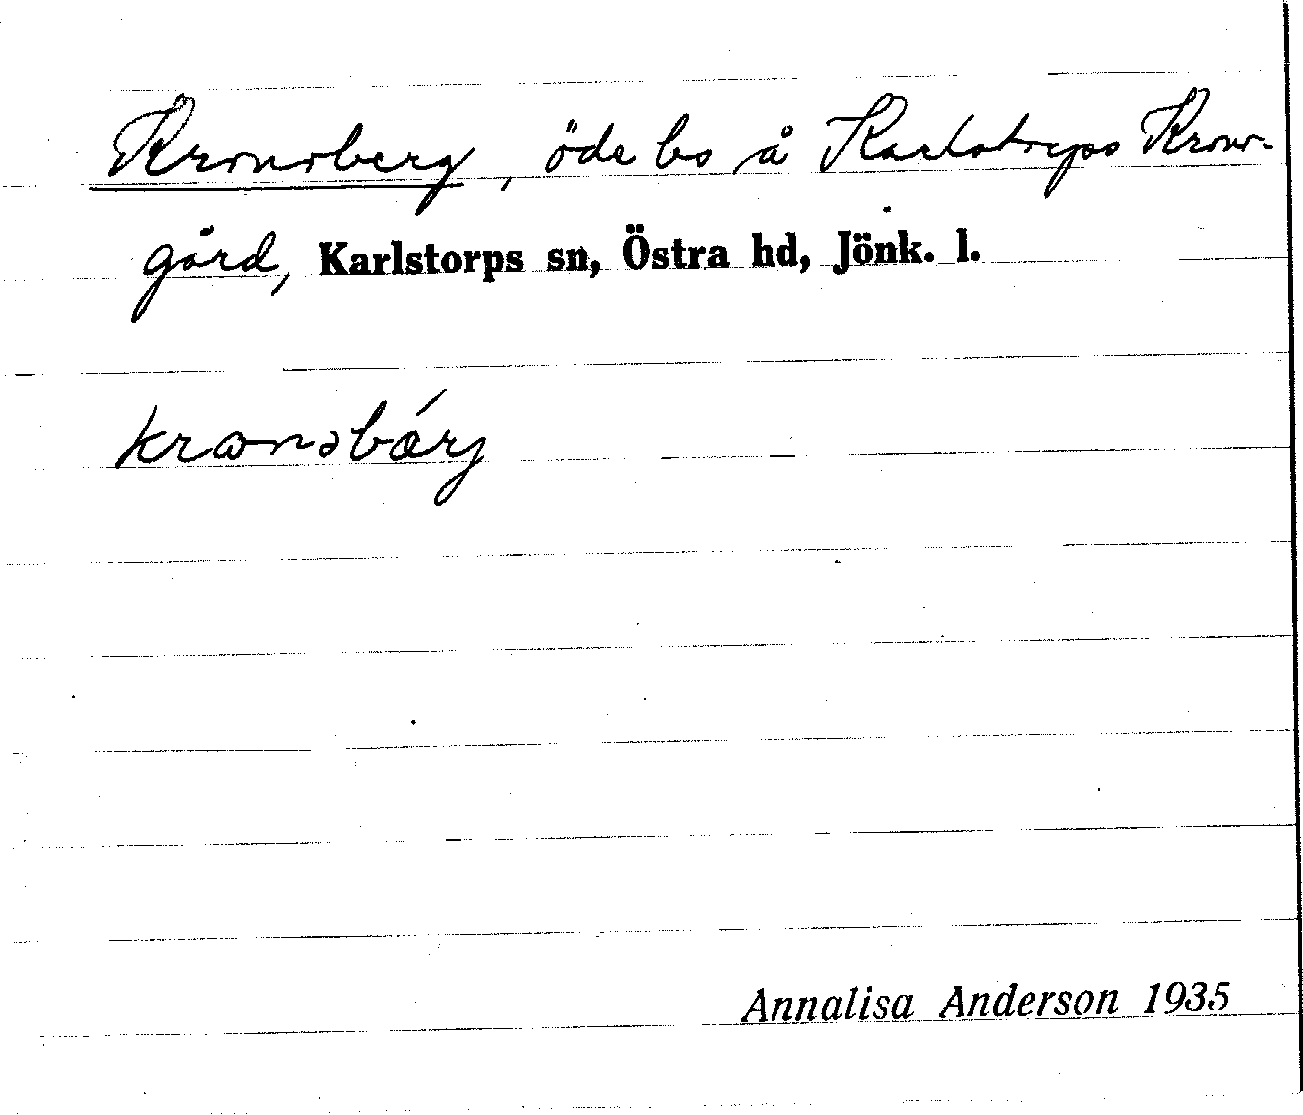 Kronoberg, öde bs å Karlstorps Krono-
gård, Karlstorps sn, Östra hd, Jönk. l.
kronəbárj
Annalisa Anderson 1935